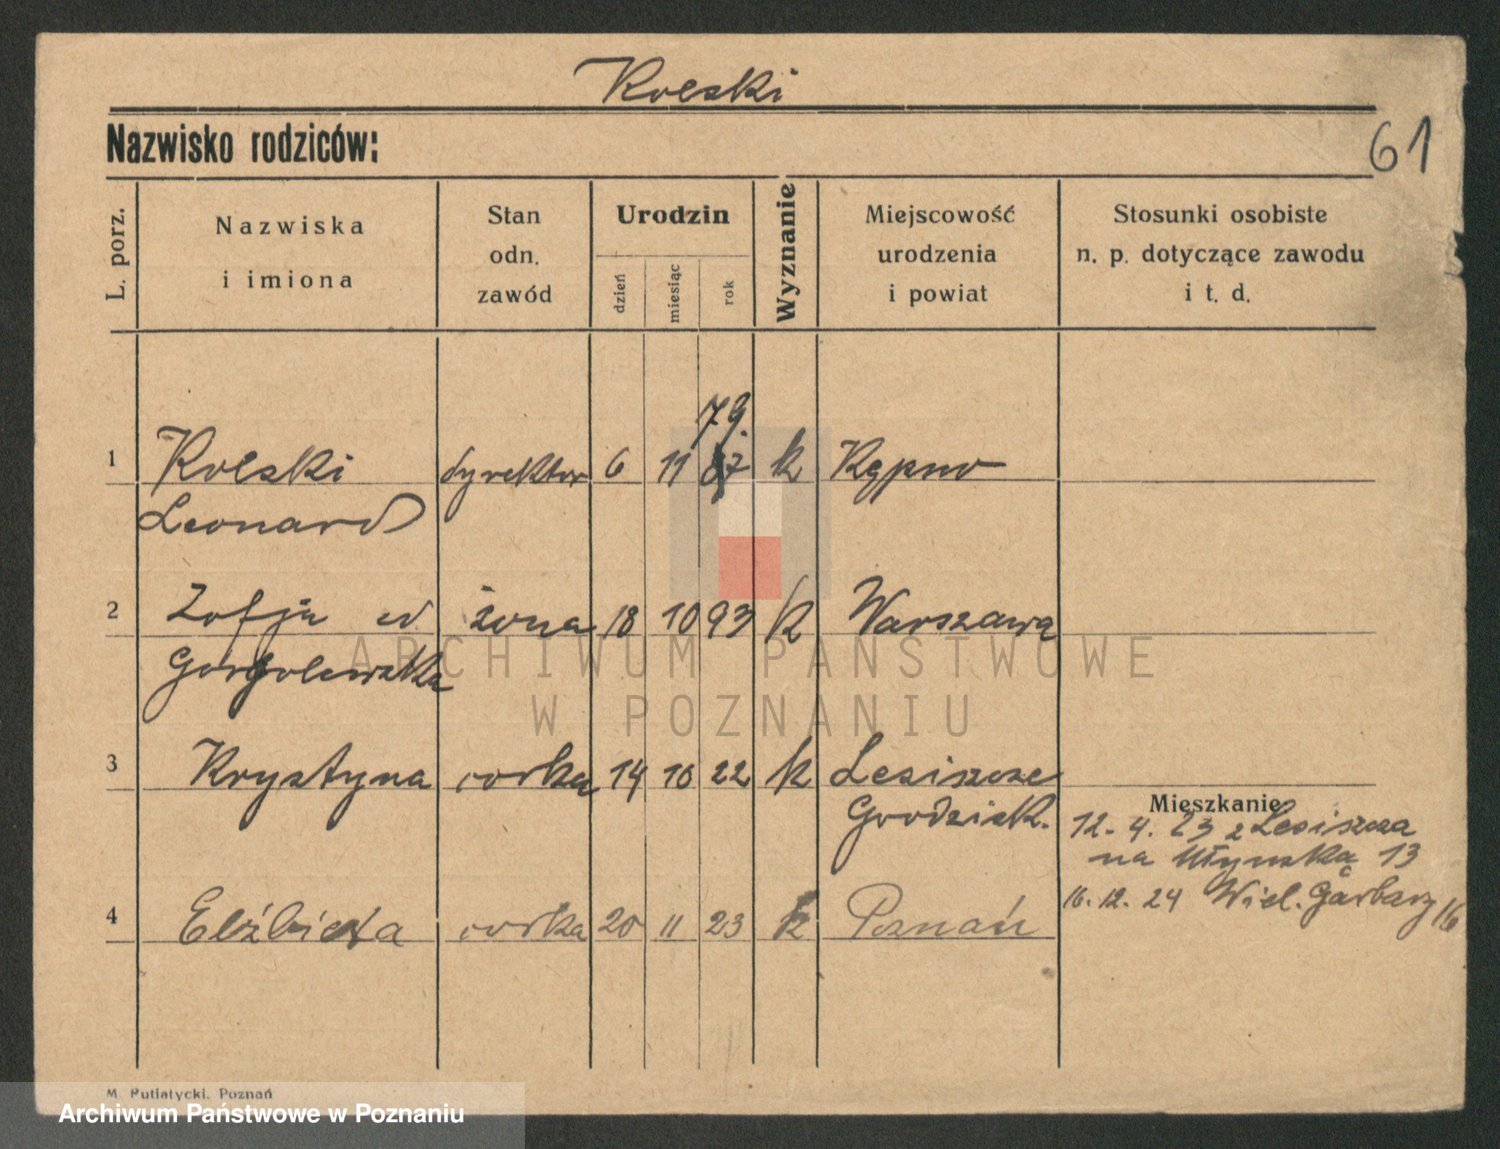 Kolski
Nazwisko rodziców:
61
L. porz.
Nazwiska
i imiona
Stan
odn.
zawód
Urodzin
dzień
miesiąc
rok
Wyznanie
Miejscowość
urodzenia
i powiat
Stosunki osobiste
n. p. dotyczące zawodu
i t. d.
79.
1 Kolski dyrektor 6 11 87 k Kępno
Leonard
2 Zofja żona 18 10 93 k Warszawa
Gorgolewska
3 Krystyna corka 14 10 22 k
Grodzisk.
Mieszkanie
12. 4. 23 z
na Młynską 13
16. 12. 24 Wiel. Garbary 16
4 Elźbieta corka 20 11 23 k Poznań
M. Putiatycki, Poznań
ARCHIWUM PAŃSTWOWE
W POZNANIU
Archiwum Państwowe w Poznaniu